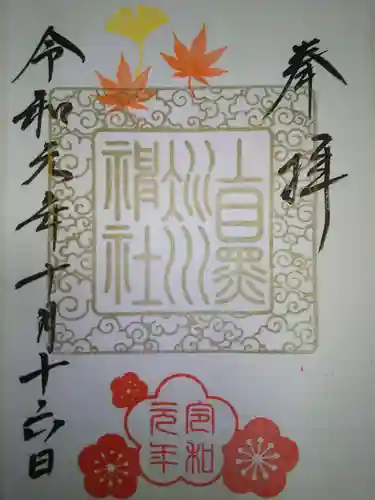 奉拝
上目黒
氷川
神社
令和元年十月十六日
令和
元年